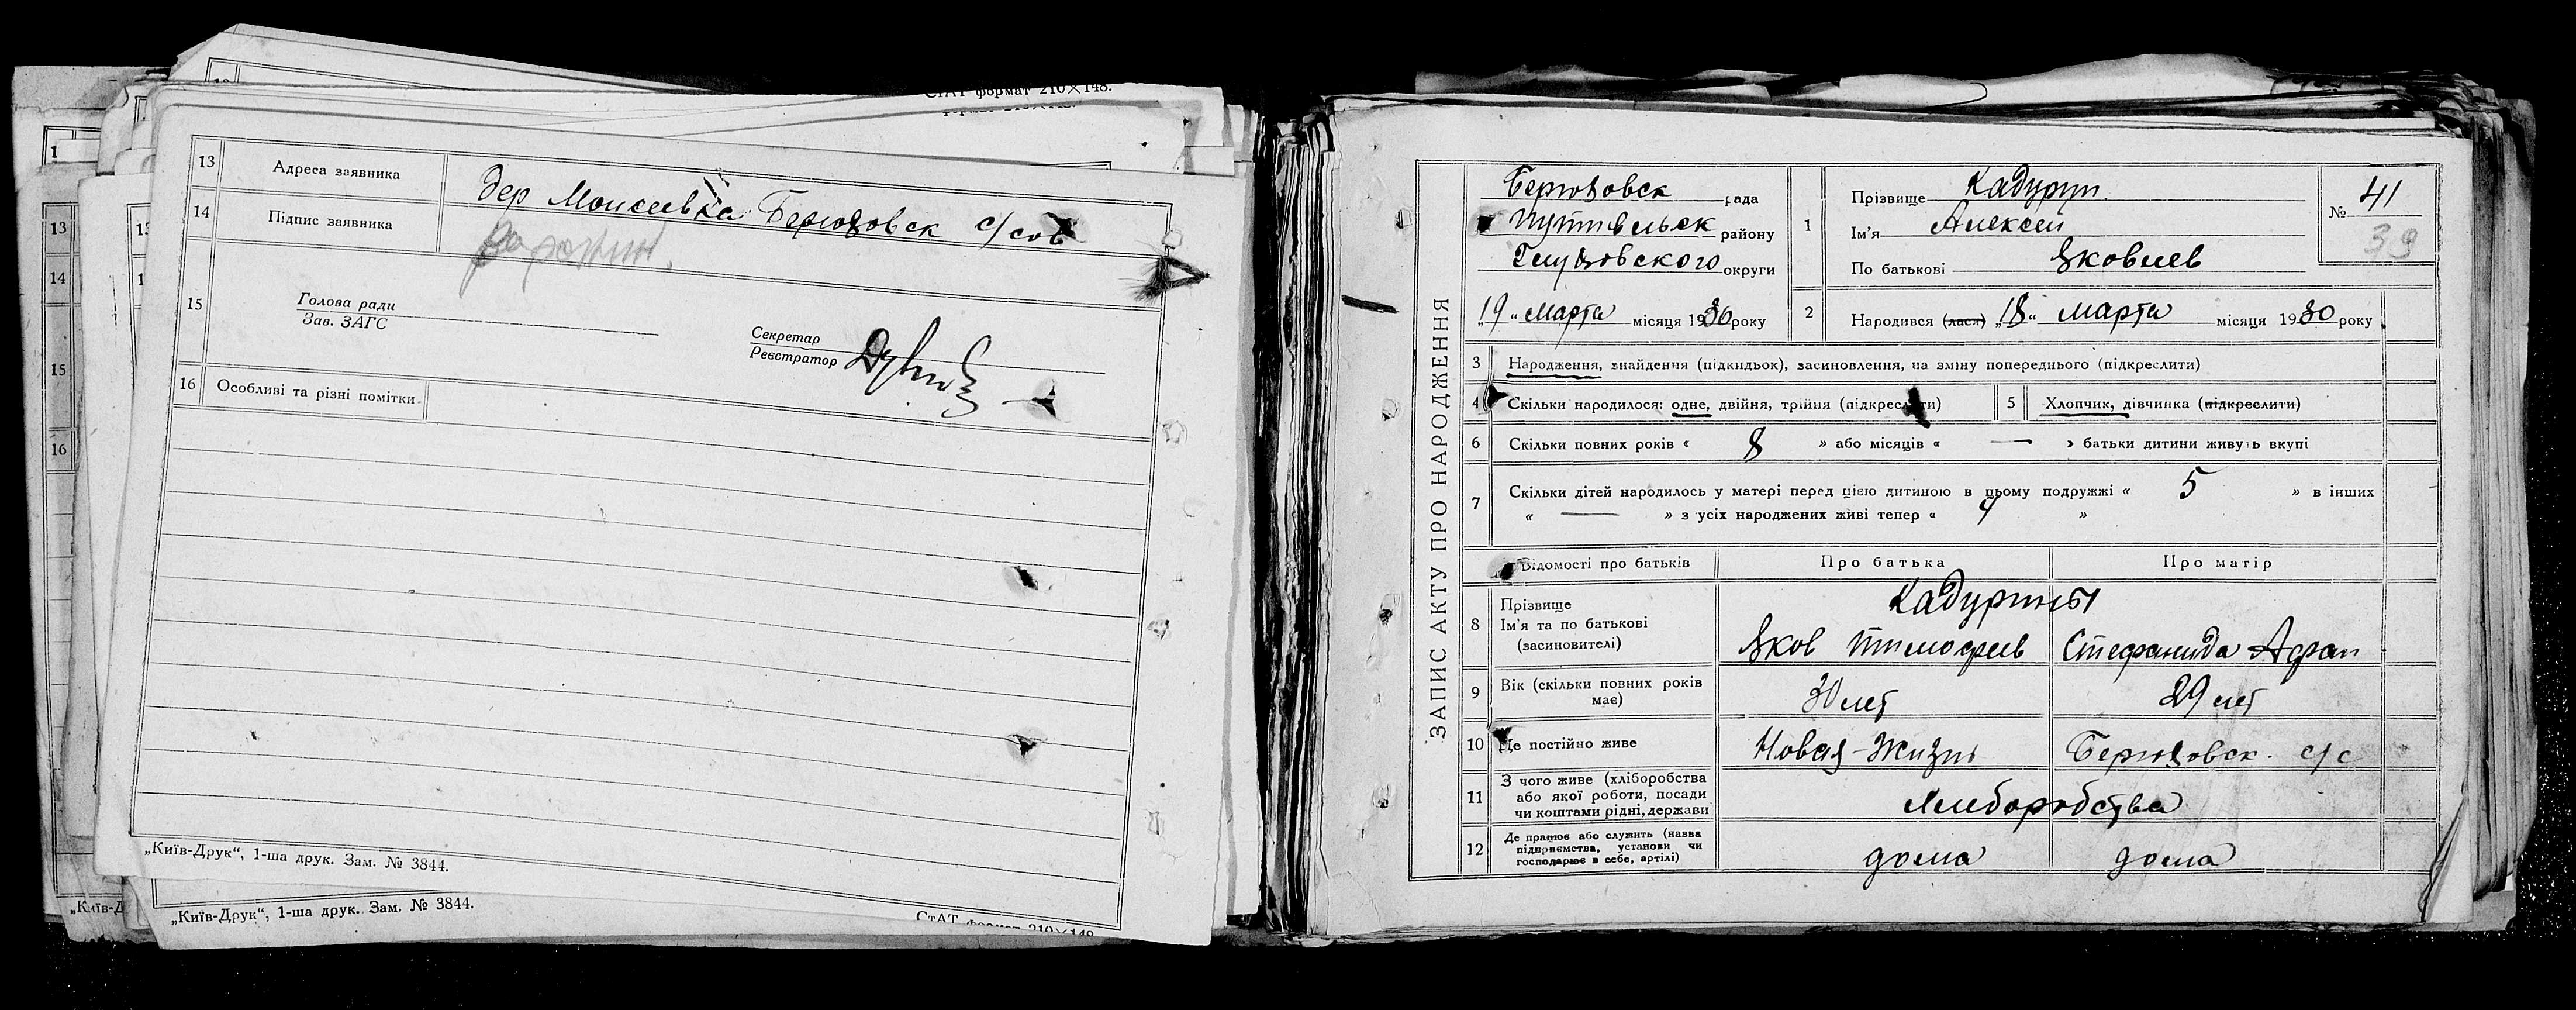 СтАТ формат 210×148.
1
13
14
15
16
13 Адреса заявника дер Моисеевка Берюховск с/сов
14 Підпис заявника
15 Голова ради
Зав. ЗАГС
Секретар
Реєстратор
16 Особливі та різні помітки
„Київ-Друк“, 1-ша друк. Зам. № 3844.
„Київ-Друк“, 1-ша друк. Зам. № 3844.
СтАТ формат 210×148
ЗАПИС АКТУ ПРО НАРОДЖЕННЯ
Берюховск рада
Путивльск району
Глуховского округи
„19“ марта місяця 1930 року
1 Прізвище Кадурин
Ім'я Алексей
По батькові Яковлев
№ 41
39
2 Народився (лася) „18“ марта місяця 1930 року
3 Народження, знайдення (підкидьок), засиновлення, на зміну попереднього (підкреслити)
4 Скільки народилося: одне, двійня, трійня (підкреслити) 5 Хлопчик, дівчинка (підкреслити)
6 Скільки повних років « 8 » або місяців « — » батьки дитини живуть вкупі
7 Скільки дітей народилось у матері перед цією дитиною в цьому подружжі « 5 » в інших
« — » з усіх народжених живі тепер « 4 »
Відомості про батьків Про батька Про матір
8 Прізвище Кадурины
Ім'я та по батькові
(засиновителі) Яков Тимофеев Стефанида
9 Вік (скільки повних років має) 30 лет 29 лет
10 Де постійно живе Новая-Жизнь Берюховск. с/с
11 З чого живе (хліборобства
або якої роботи, посади
чи коштами рідні, держави Хлеборобства
12 Де працює або служить (назва
підприємства, установи чи
господарює в себе, артілі) дома дома